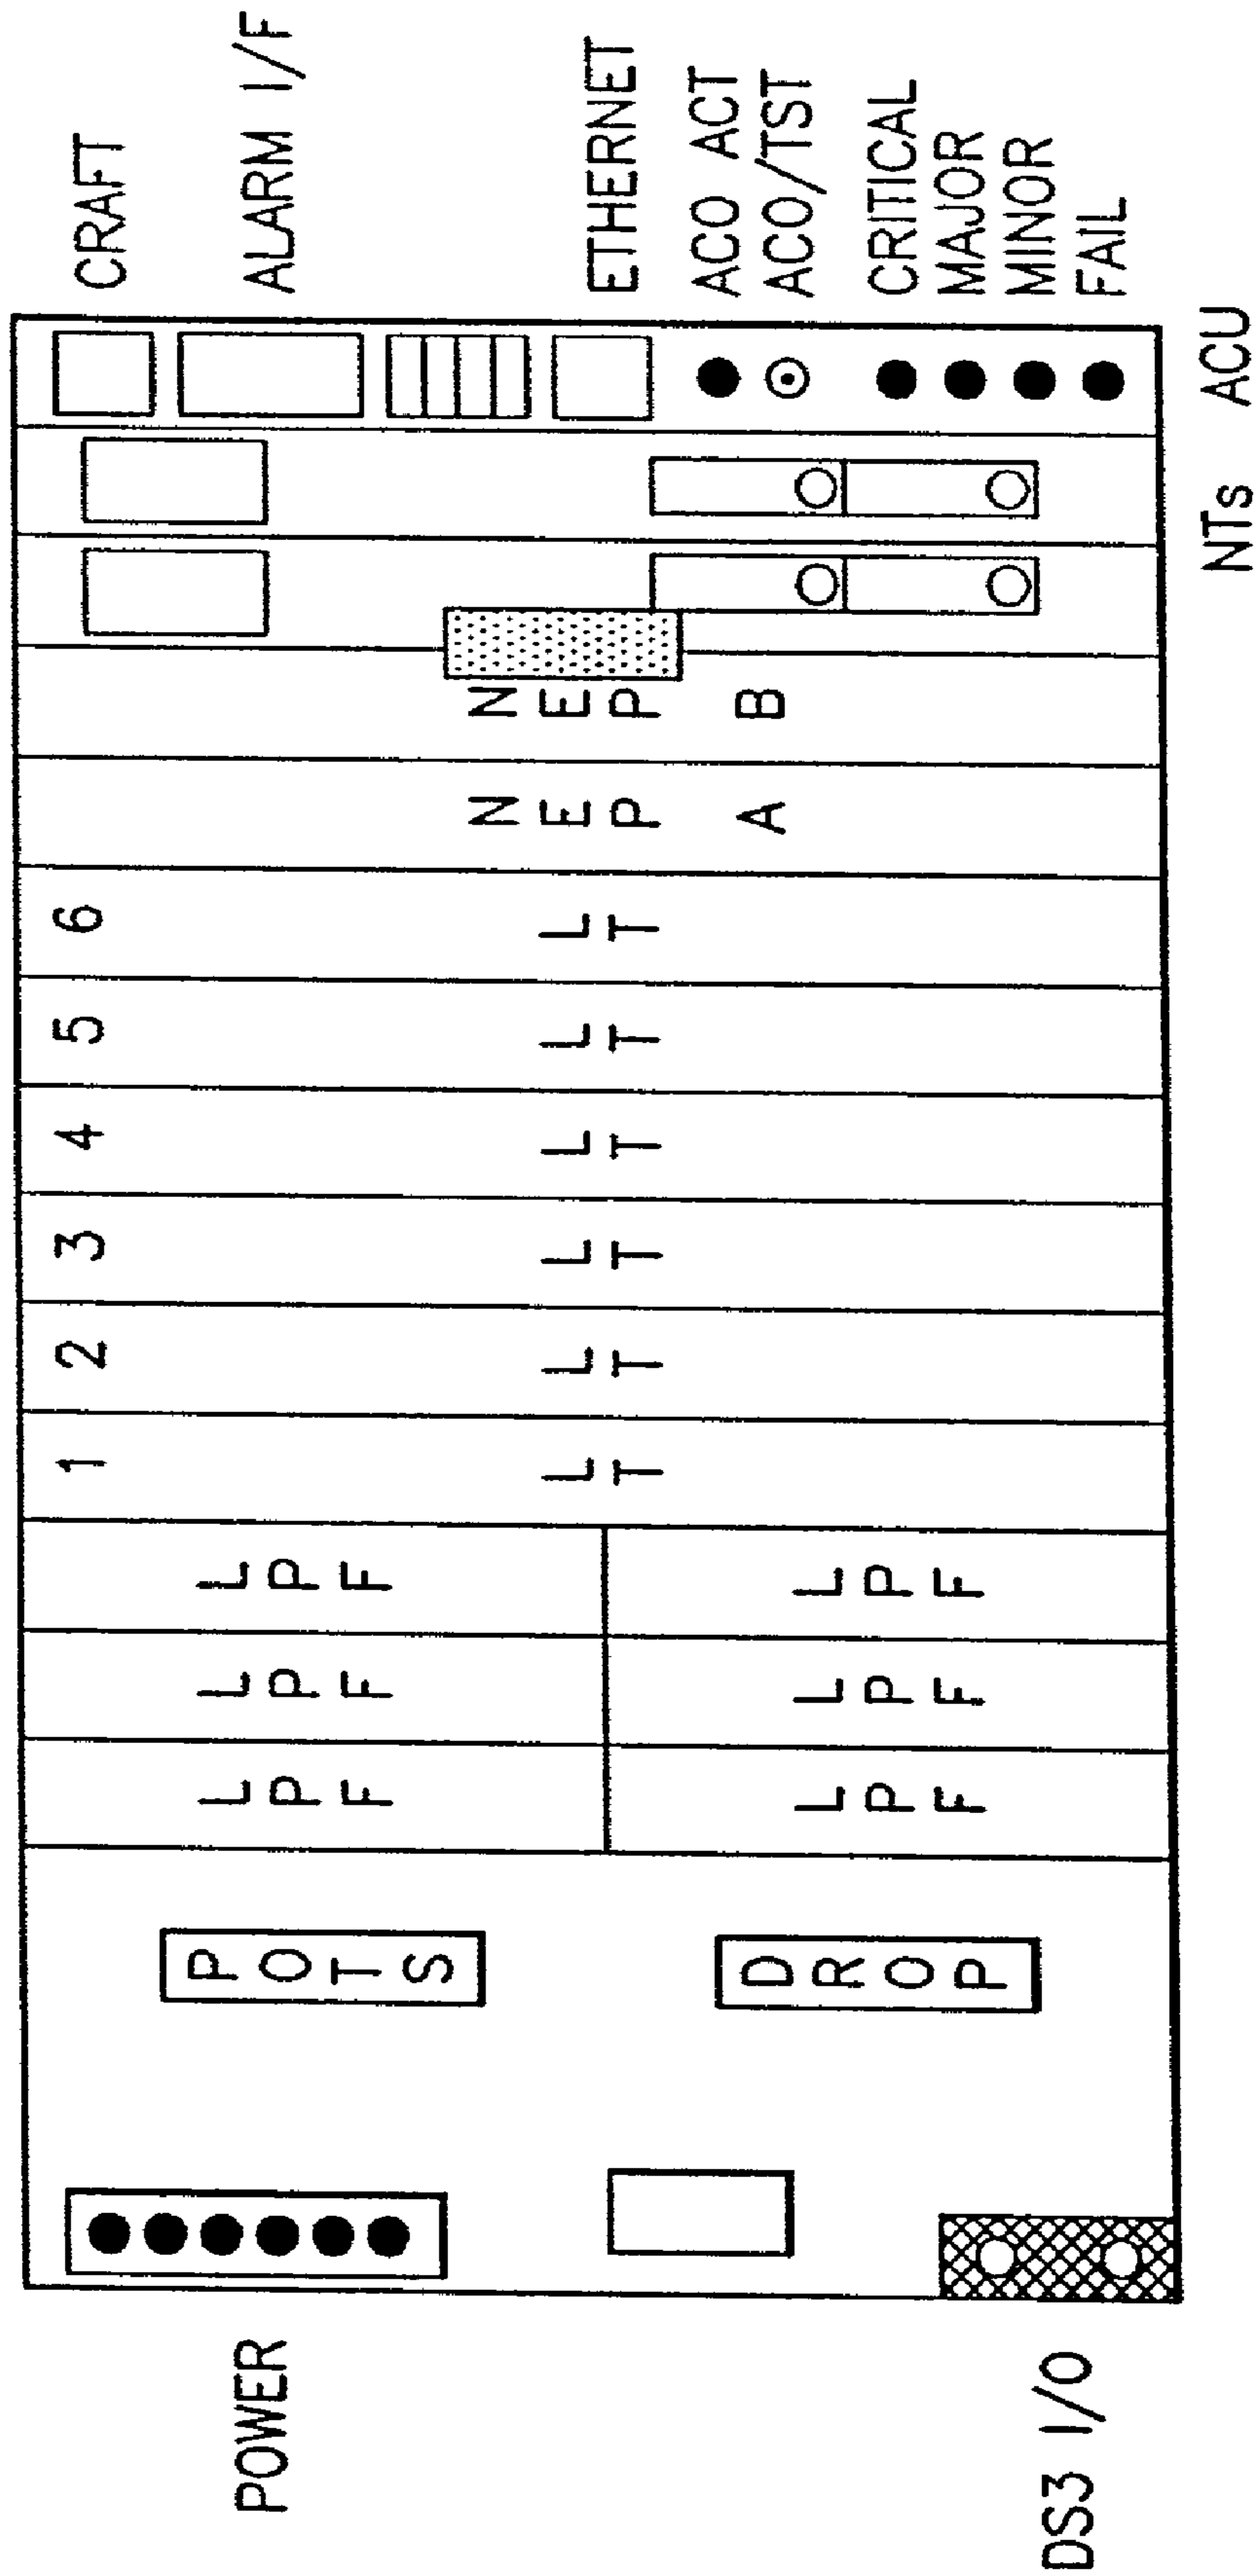 POWER
DS3 I/O
POTS
DROP
LPF
LPF
LPF
LPF
LPF
LPF
1
LT
2
LT
3
LT
4
LT
5
LT
6
LT
NEP A
NEP B
CRAFT
ALARM I/F
ETHERNET
ACO ACT
ACO/TST
CRITICAL
MAJOR
MINOR
FAIL
NTs ACU